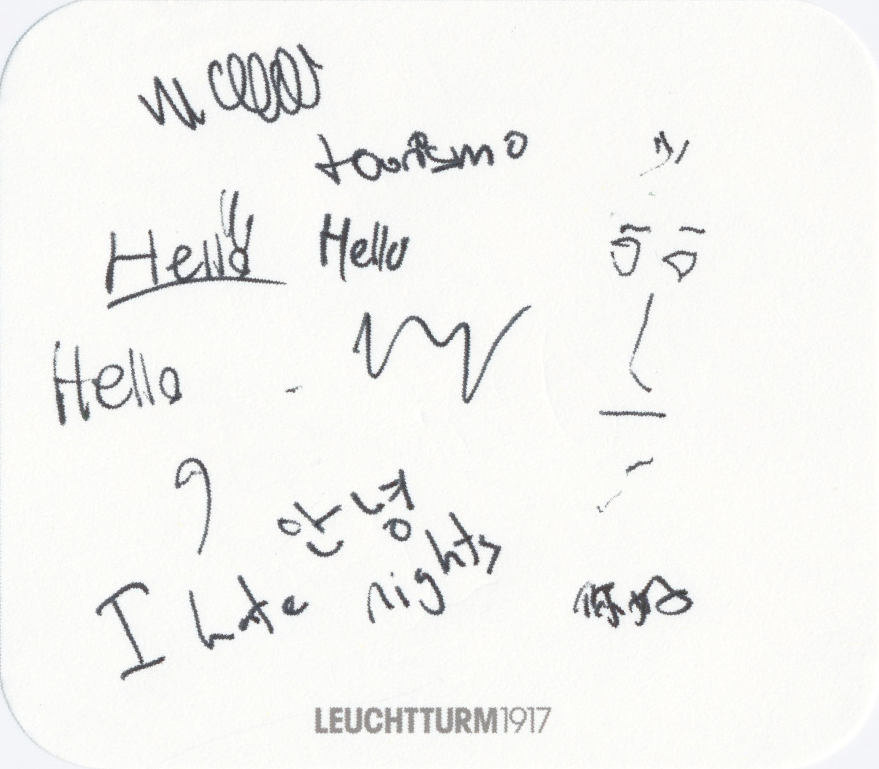 tourismo
Hello Hello
Hello
안녕
I hate nights
LEUCHTTURM1917